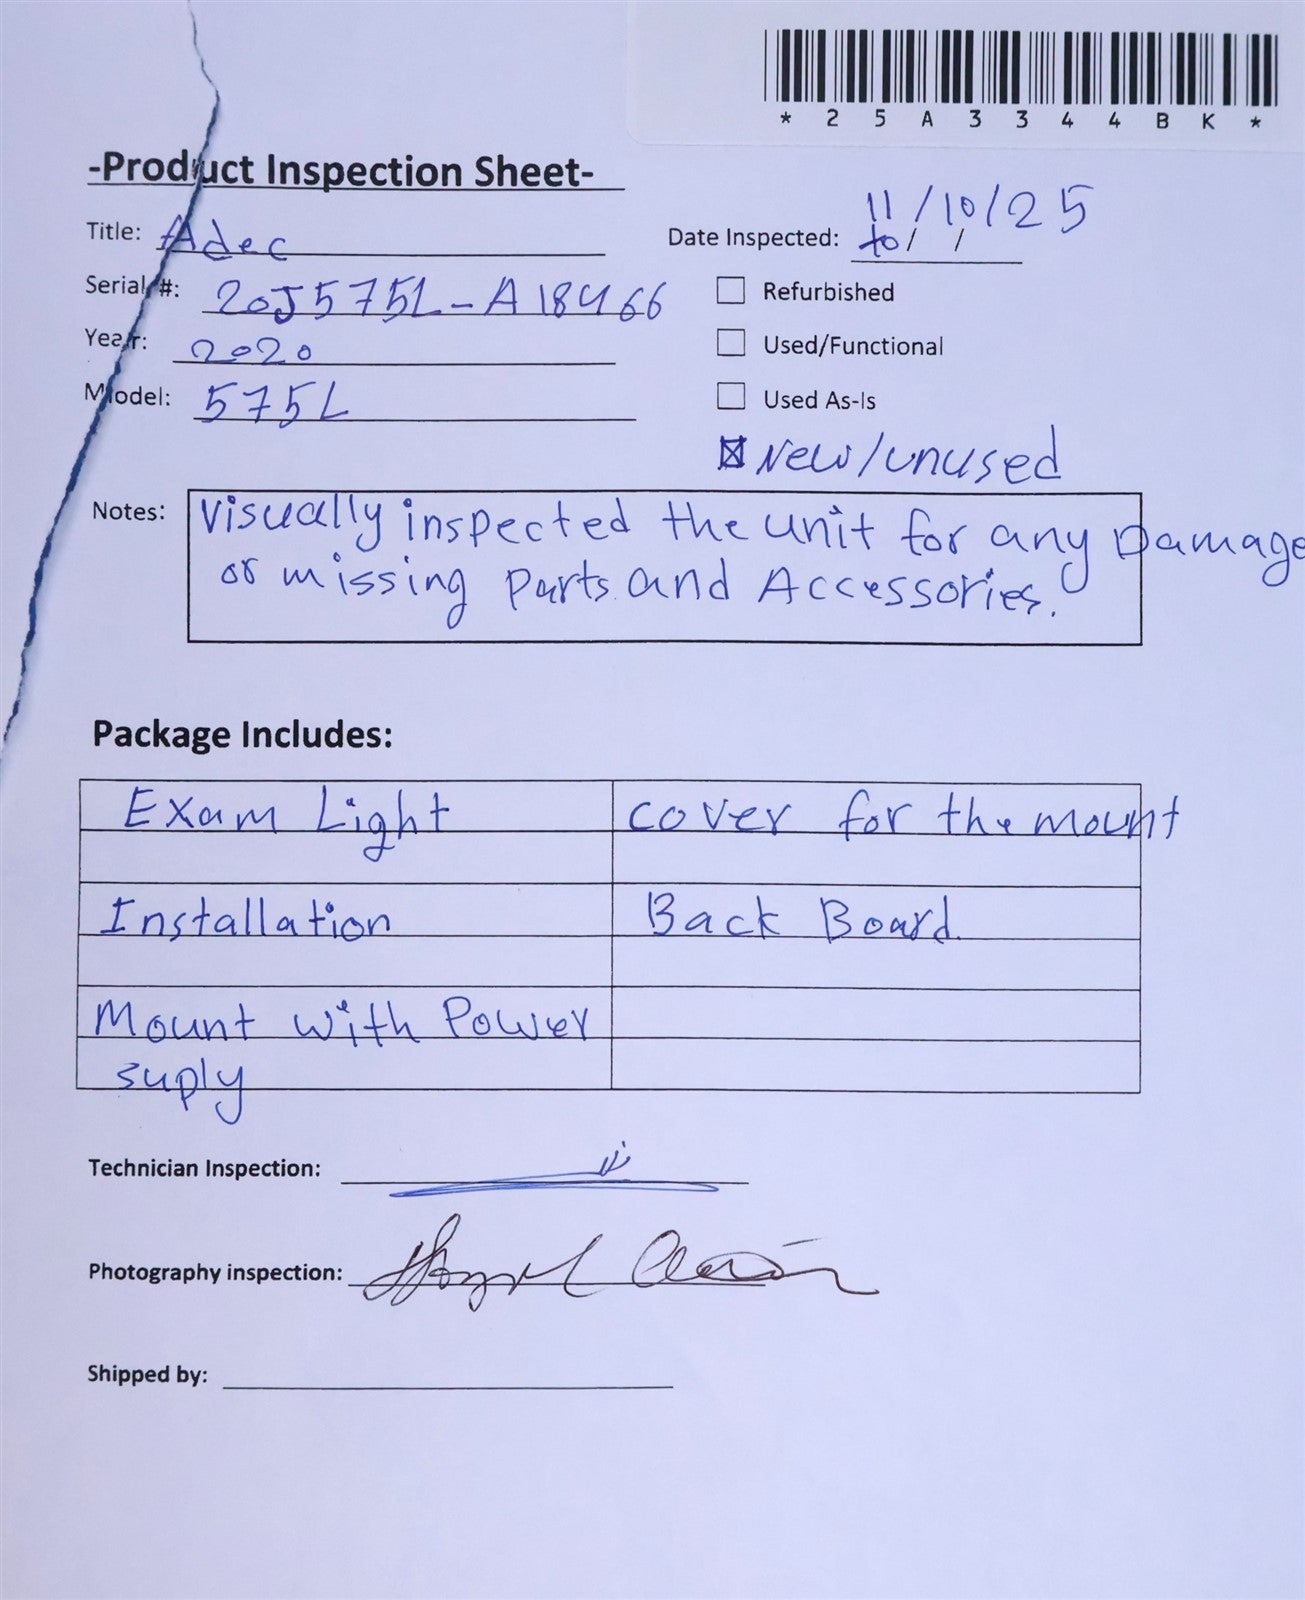 *25A3344BK*
-Product Inspection Sheet-
Title: Adec
Date Inspected: 11/10/25
Serial #: 20J575L-A18466
Refurbished
Year: 2020
Used/Functional
Model: 575L
Used As-Is
New/unused
Notes: Visually inspected the unit for any Damage
or missing Parts and Accessories.
Package Includes:
Exam Light cover for the mount
Installation Back Board.
Mount with Power
suply
Technician Inspection:
Photography inspection:
Shipped by: